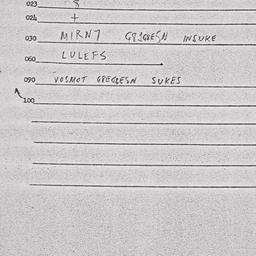 023 8
024 +
030 MIRN7 INSUKE
060 LULEFS
090 VOSMOT GREGLESN SUKES
100